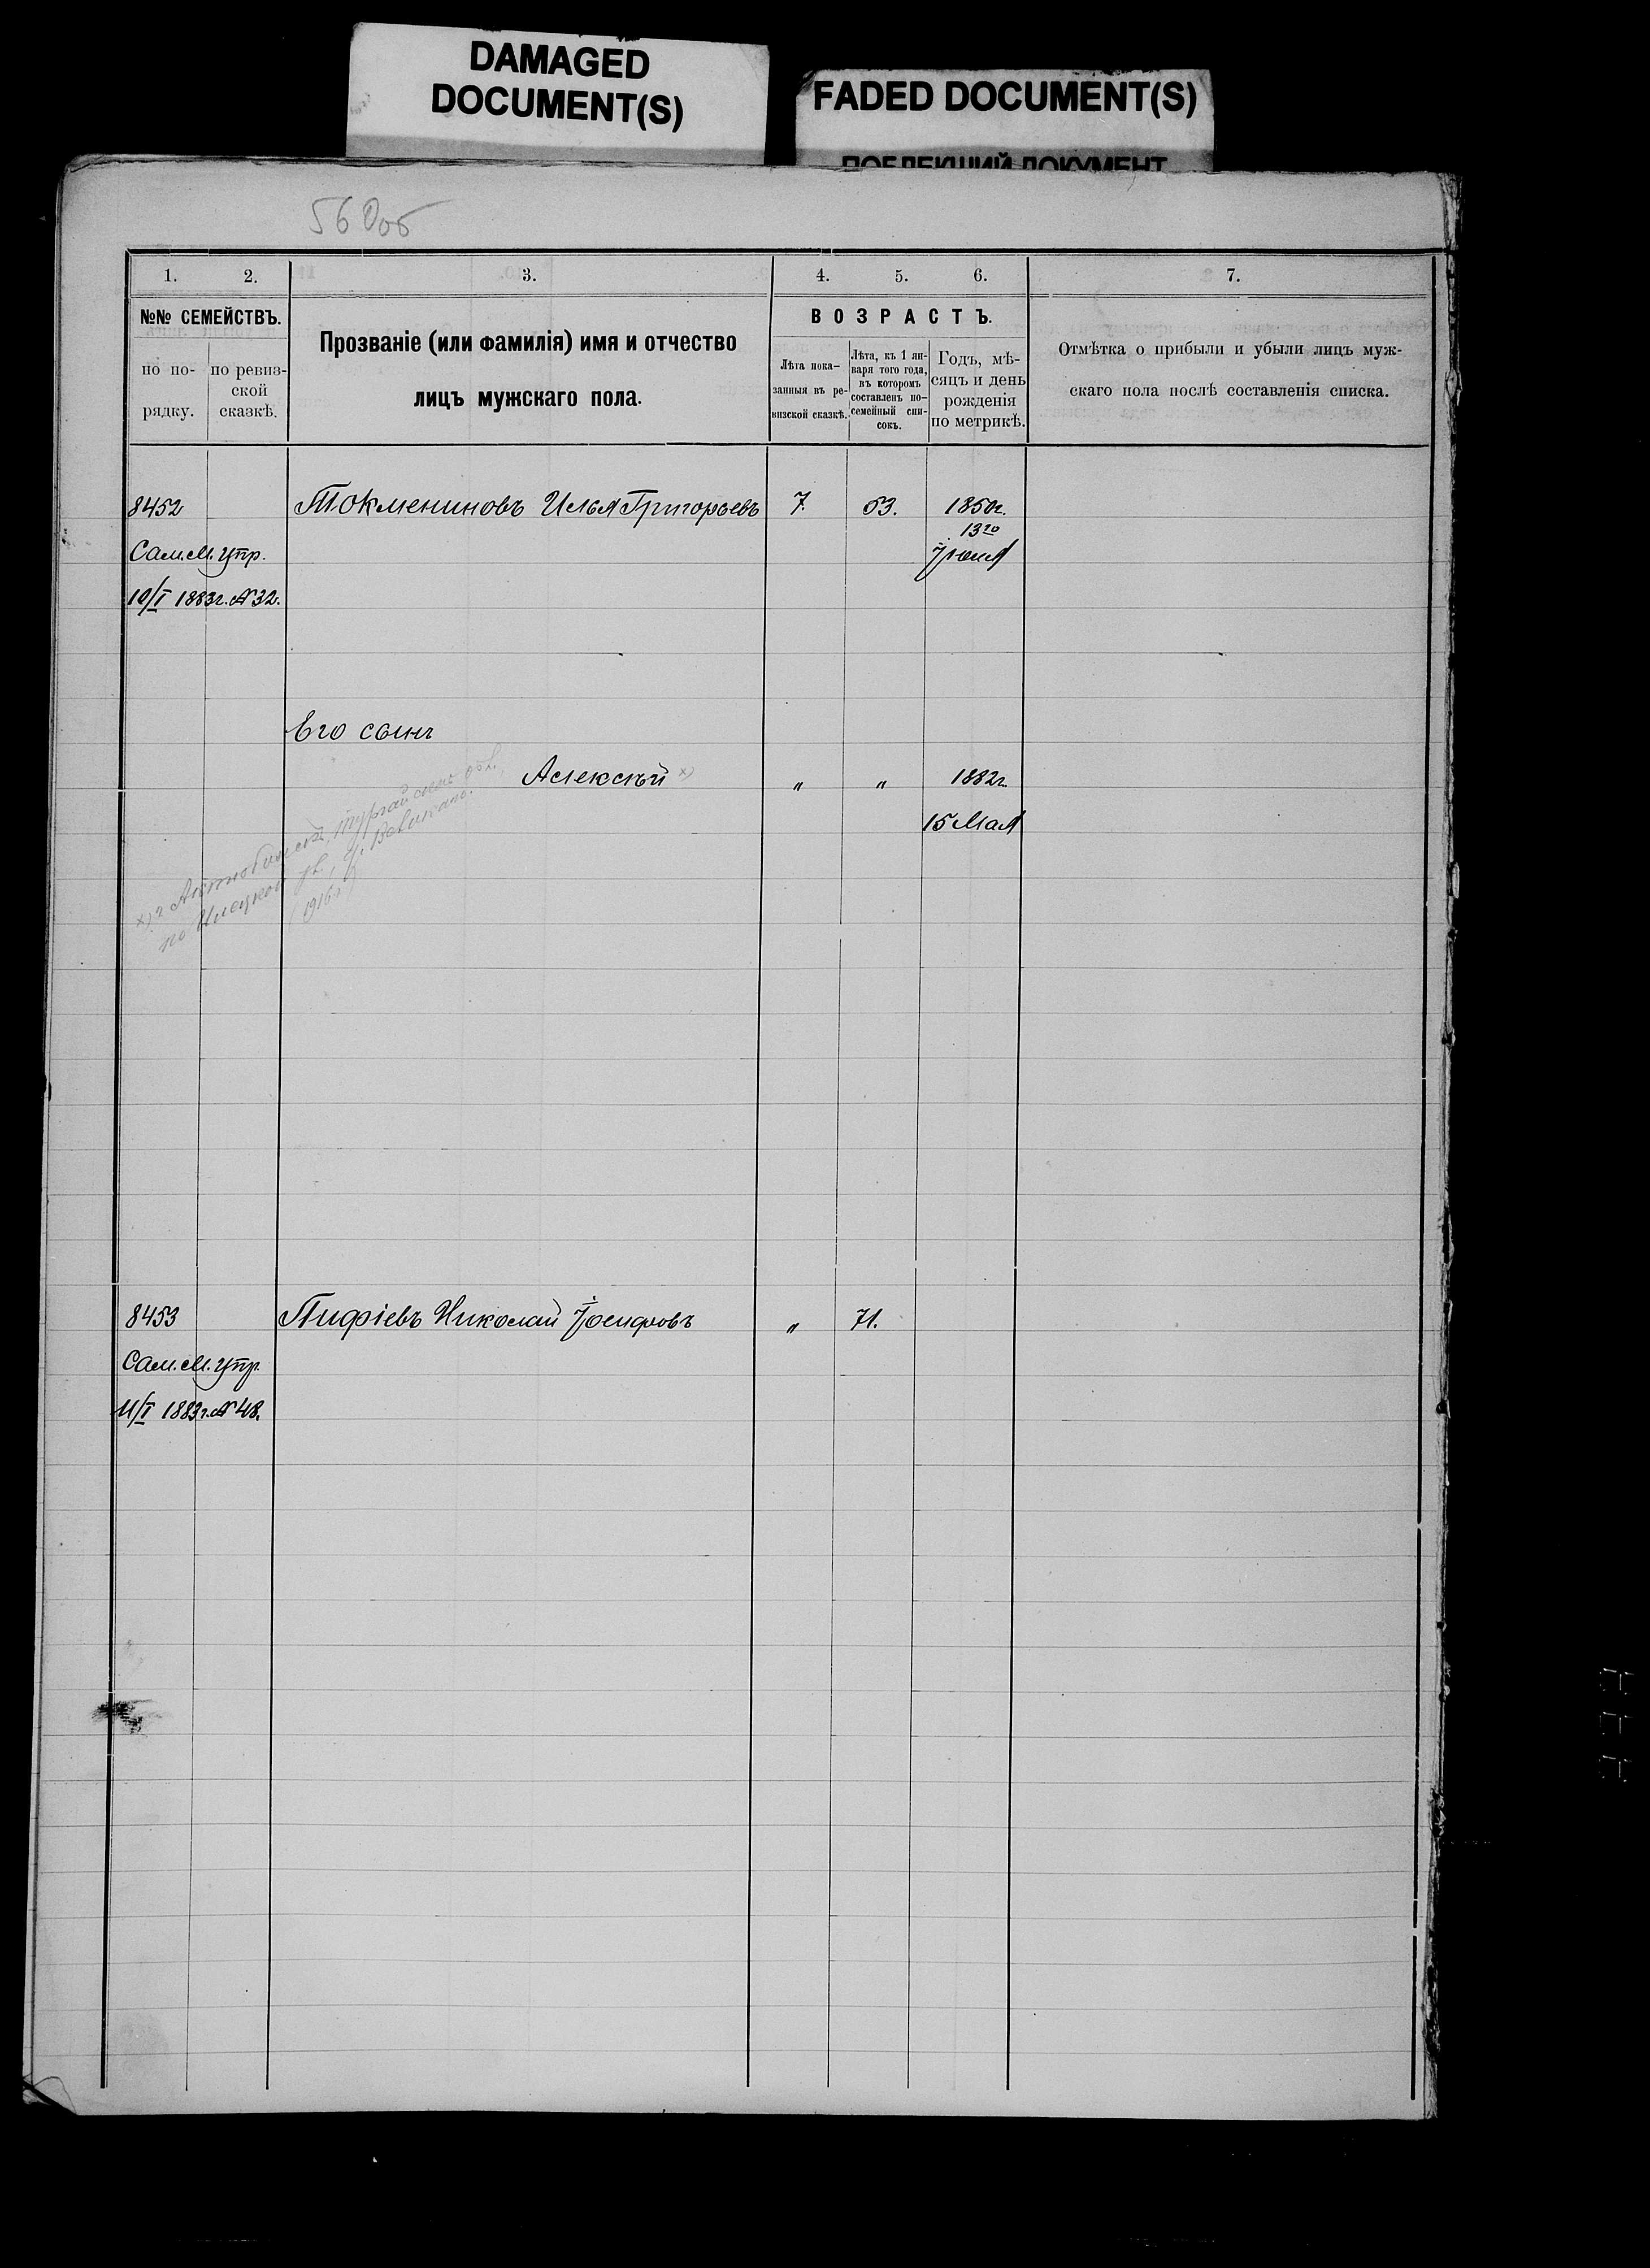 DAMAGED
DOCUMENT(S)
FADED DOCUMENT(S)
ПОБЛЕКШИЙ ДОКУМЕНТ
56 Об
1. 2. 3. 4. 5. 6. 7.
№№ СЕМЕЙСТВЪ.
по по-
рядку.
по ревиз-
ской
сказкѣ.
Прозваніе (или фамилія) имя и отчество
лицъ мужскаго пола.
ВОЗРАСТЪ.
Лѣта пока-
занныя въ ре-
визской сказкѣ.
Лѣта, къ 1 ян-
варя того года,
въ которомъ
составленъ по-
семейный спи-
сокъ.
Годъ, мѣ-
сяцъ и день
рожденія
по метрикѣ.
Отмѣтка о прибыли и убыли лицъ муж-
скаго пола послѣ составленія списка.
8452 Токмениновъ Илья Григорьевъ 7. 53. 1850г.
13го
Сам. М. Упр.
10/I 1883г. № 32.
Его сынъ
Алексѣй х) " " 1882г.
15 Мая
х) г Актюбинскъ, Тургайской обл.
по Илецкой ул.
1916г.
8453 Пифіевъ Николай Іосифовъ " 71.
Сам. М. Упр.
11/I 1883г. № 48.